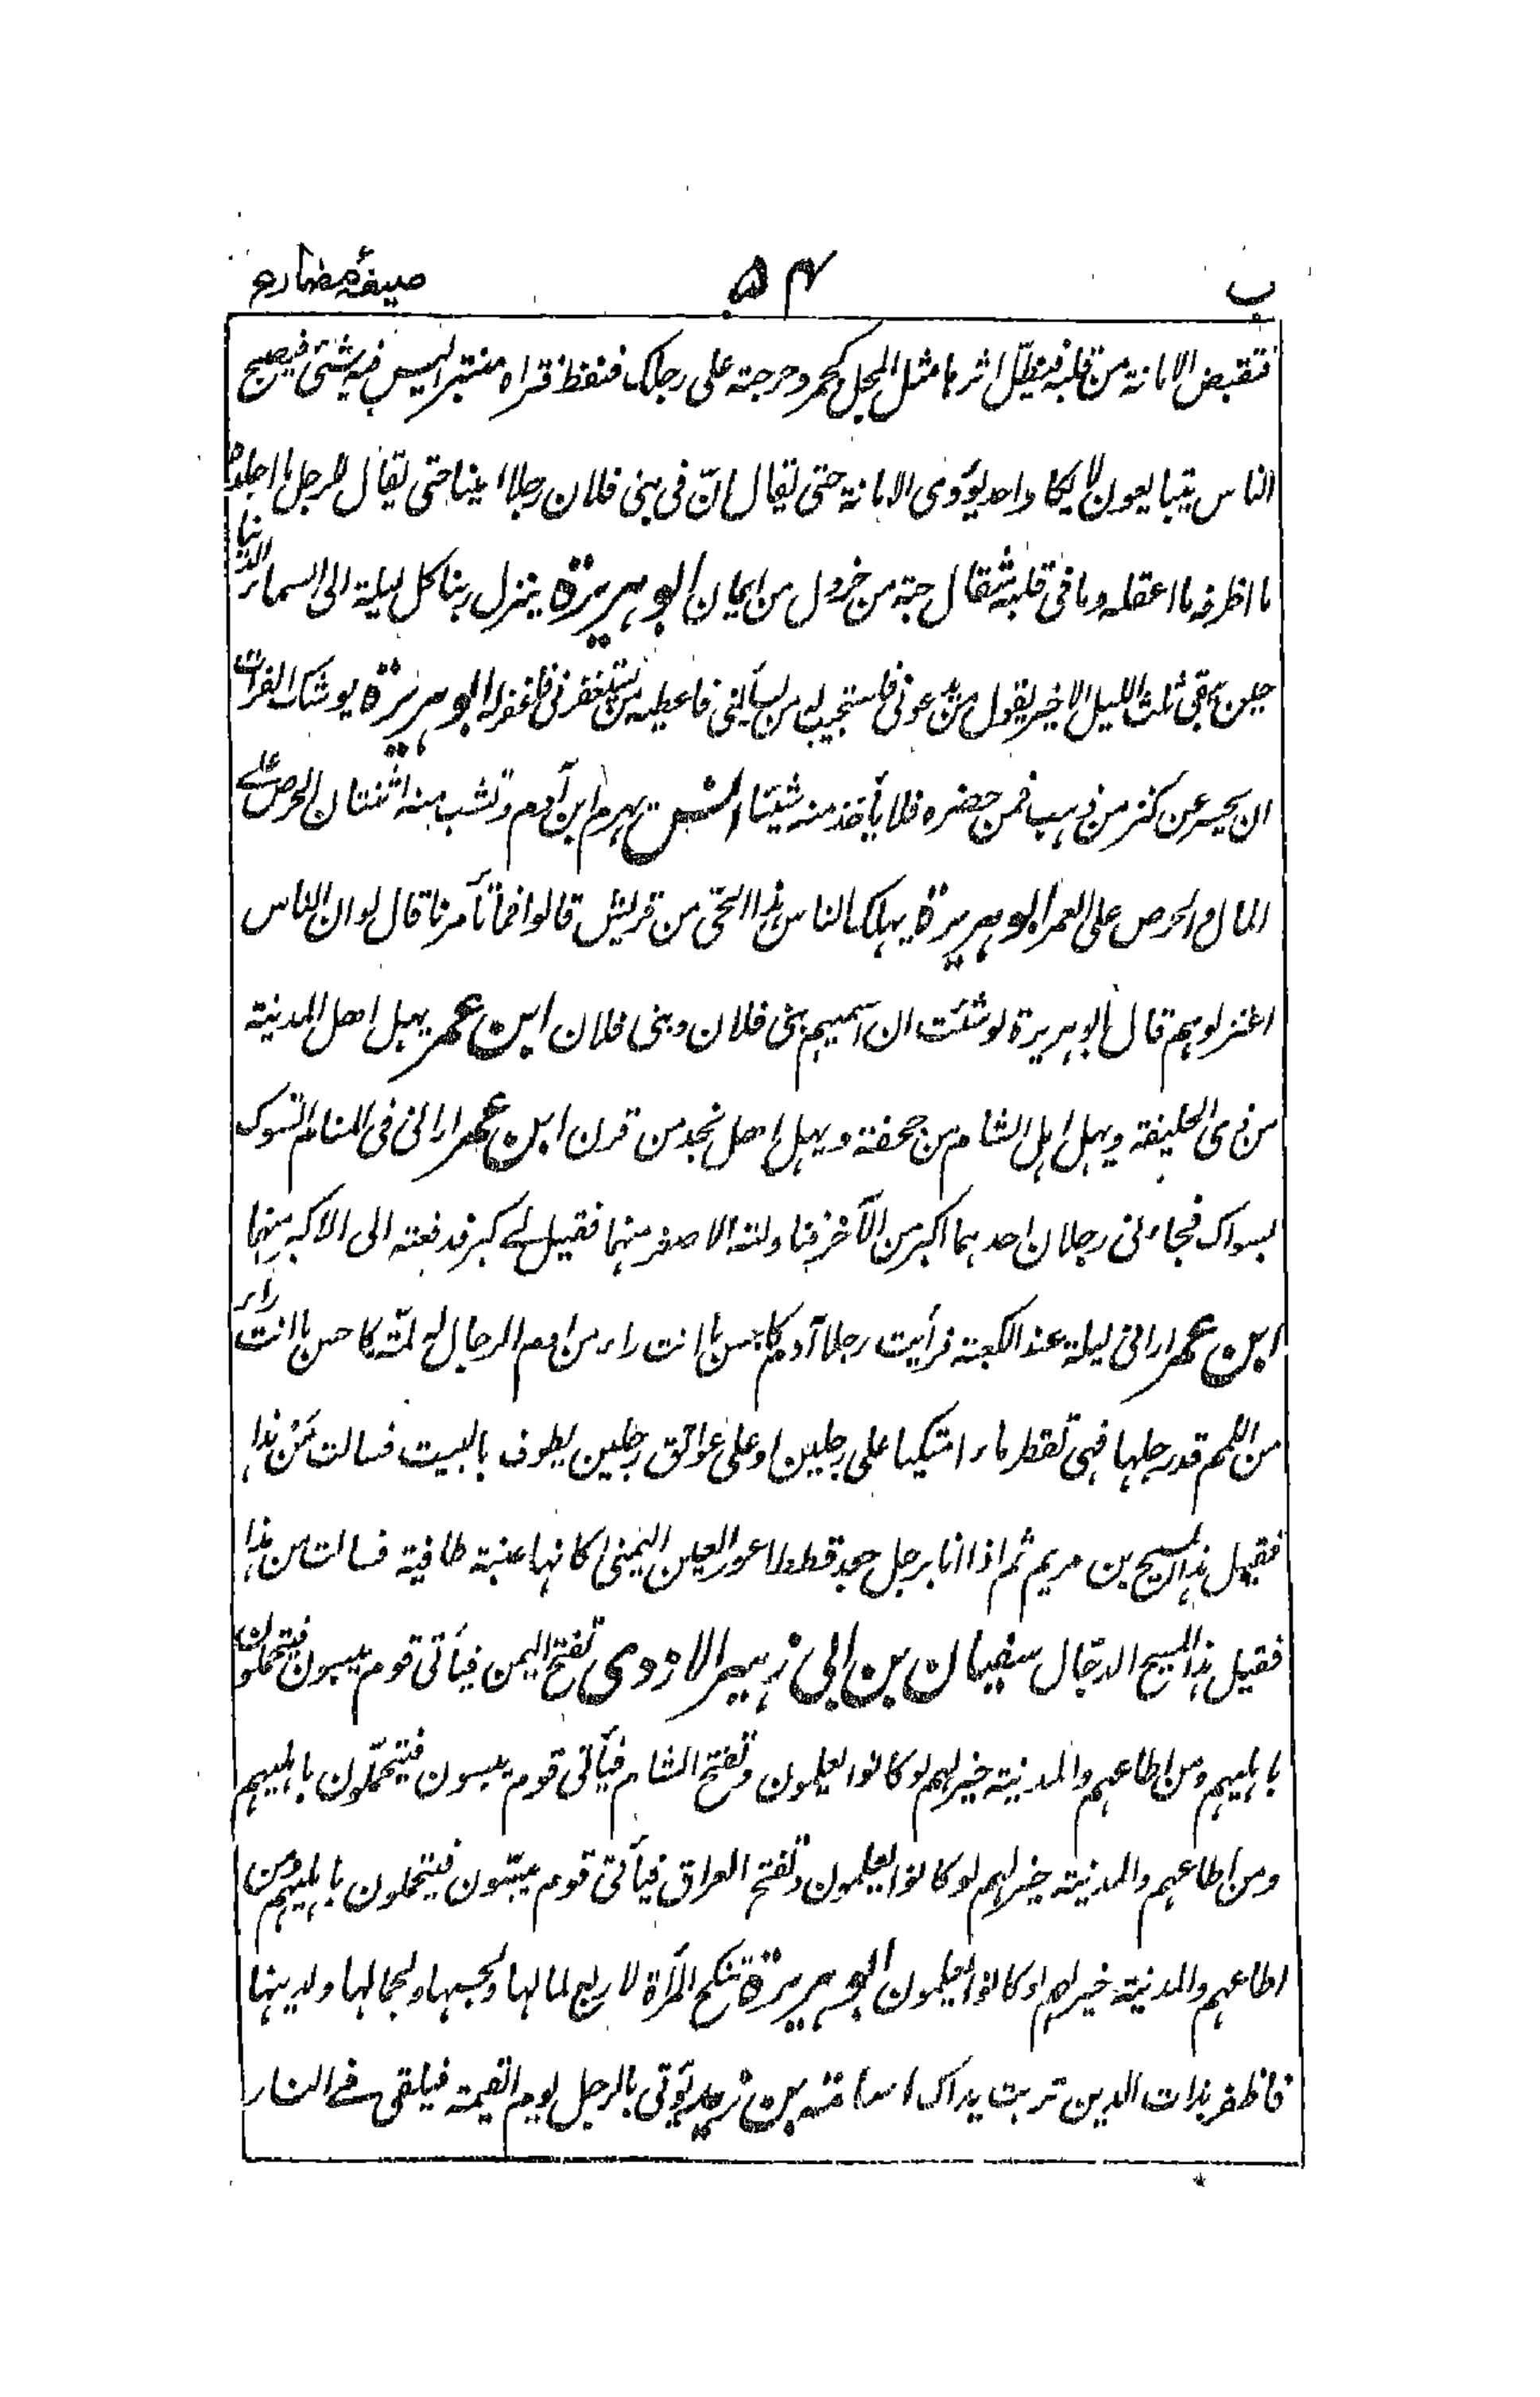 ب ۵۴ صیغۂ مضارع
فتقبض الامانة من قلبه فیظلّ اثرها مثل المجل کجمر دحرجته علی رجلک فنفط فتراه منتبرا لیس فیه شئ فیصبح
الناس یتبایعون لا یکاد احد یؤدی الامانة حتی یقال انّ فی بنی فلان رجلا امینا حتی یقال للرجل ما اجلده
ما اظرفه ما اعقله وما فی قلبه مثقال حبة من خردل من ایمان ابو ہریرة ینزل ربنا کل لیلة الی السماء الدنیا
حین یبقی ثلث اللیل الاخیر یقول من یدعونی فاستجیب له من یسألنی فاعطیه من یستغفرنی فاغفر له ابو ہریرة یوشک الفرات
ان یحسر عن کنز من ذہب فمن حضره فلا یأخذ منه شیئا انس یہرم ابن آدم وتشب منه اثنتان الحرص علے
المال والحرص علی العمر ابو ہریرة یہلک الناس ہذا الحیّ من قریش قالوا فما تأمرنا قال لو ان الناس
اعتزلوہم قال ابو ہریرة لو شئت ان اسمیہم بنی فلان وبنی فلان ابن عمر یہل اهل المدینة
من ذی الحلیفة ویہل اہل الشام من جحفة ویہل اهل نجد من قرن ابن عمر ارانی فی المنام اتسوک
بسواک فجاءنی رجلان احدہما اکبر من الآخر فناولته الاصغر منہما فقیل لے کبر فدفعته الی الاکبر منہما
ابن عمر ارانی لیلة عند الکعبة فرأیت رجلا آدم کاحسن ما انت راء من ادم الرجال له لمّة کاحسن ما انت راء
من اللمم قد رجلہا فہی تقطر ماء متکیا علی رجلین او علی عواتق رجلین یطوف بالبیت فسالت مَن ہذا
فقیل ہذا المسیح بن مریم ثم اذا انا برجل جعد قطط اعور العین الیمنیٰ کانہا عنبة طافیة فسالت من ہذا
فقیل ہذا المسیح الدجّال سفیان بن ابی زہیر الازدی تفتح الیمن فیأتی قوم یبسون فیتحملون
باہلیہم ومن اطاعہم والمدینة خیر لہم لو کانوا یعلمون وتفتح الشام فیأتی قوم یبسون فیتحمّلون باہلیہم
ومن اطاعہم والمدینة خیر لہم لو کانوا یعلمون وتفتح العراق فیأتی قوم یبسّون فیتحملون باہلیہم ومن
اطاعہم والمدینة خیر لہم لو کانوا یعلمون ابو ہریرة تنکح المرأة لاربع لمالہا ولحسبہا ولجمالہا ولدینہا
فاظفر بذات الدین تربت یداک اسامة بن زید یؤتی بالرجل یوم القیمة فیلقی فے النار